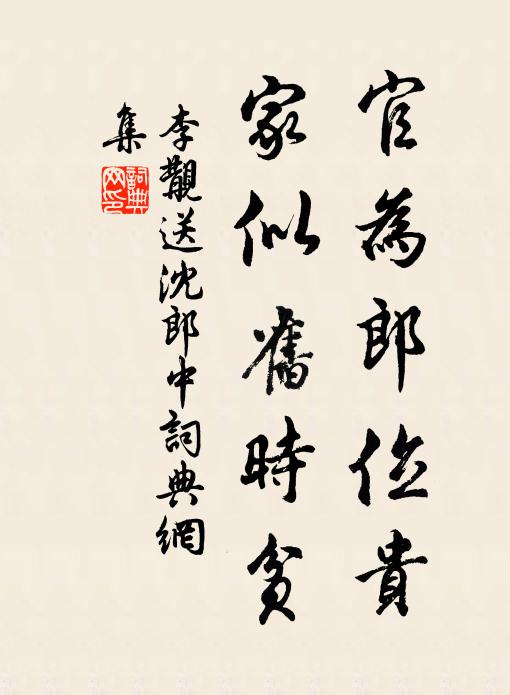 官為郎位貴
家似舊時貧
李覯送沈郎中詞典網
集
詞典
网印